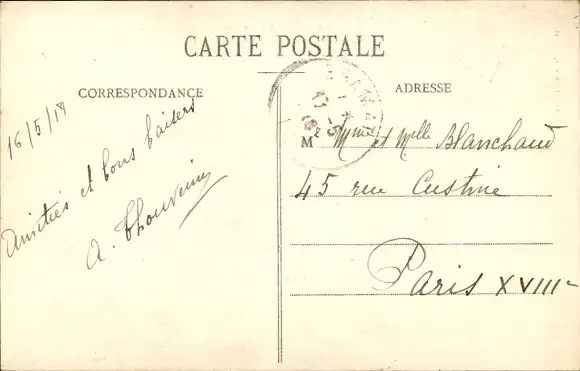 CARTE POSTALE
CORRESPONDANCE
ADRESSE
16/5/19
Amitiés et bons baisers
A. Thouvenin
Mr Mme et Melle Blanchaud
45 rue Custine
Paris XVIIIe